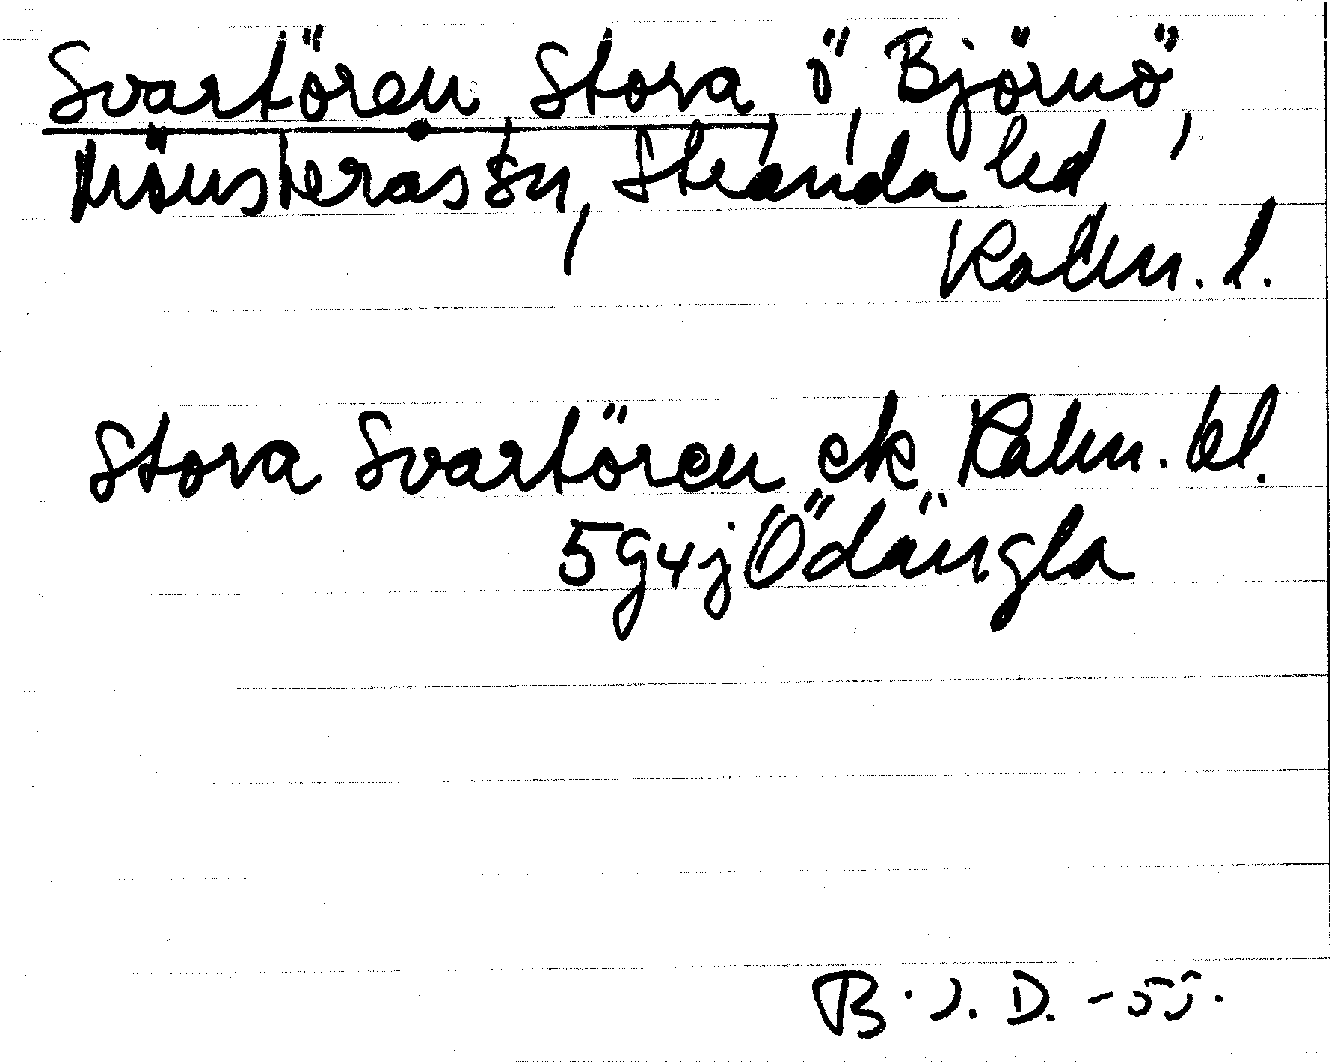 Svartören, Stora, ö, Björnö,
Mönsterås sn, Stranda hd
Kalm. l.
Stora Svartören ek Kalm. bl.
5g4j Ödängla
B.J.D. -55.